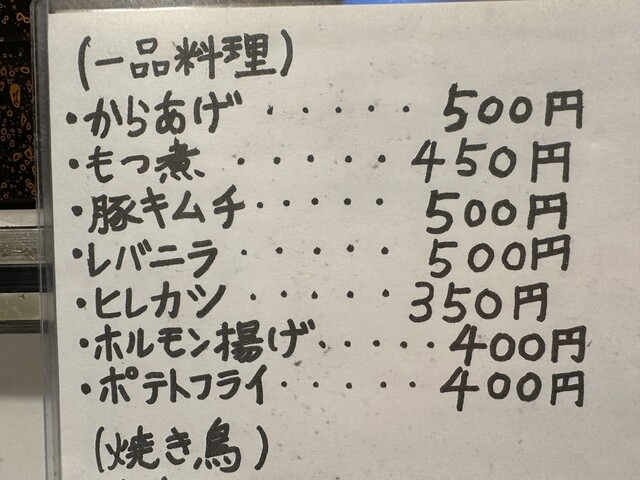 (一品料理)
・からあげ・・・・・・500円
・もつ煮・・・・・・450円
・豚キムチ・・・・・500円
・レバニラ・・・・・500円
・ヒレカツ・・・・・350円
・ホルモン揚げ・・・・・400円
・ポテトフライ・・・・・400円
(焼き鳥)